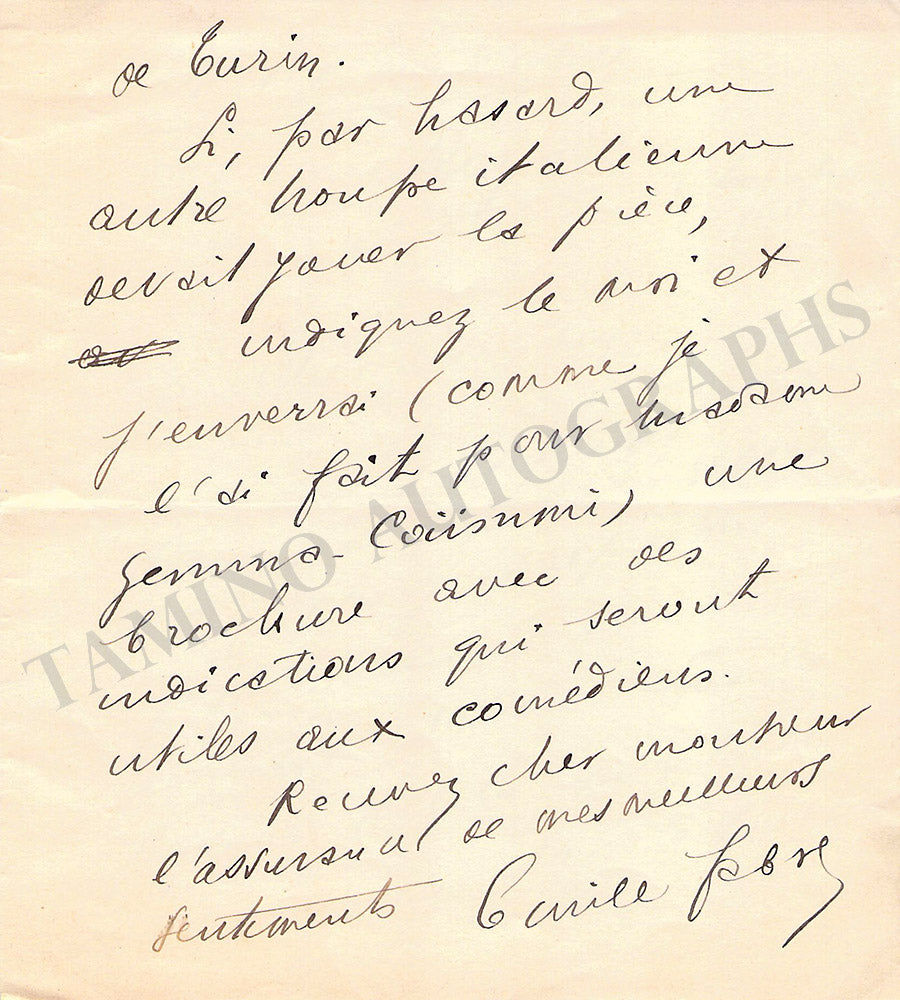 de Turin.
Si, par hasard, une
autre troupe italienne
devait jouer la pièce,
indiquez le moi et
j'enverrai (comme je
l'ai fait pour madame
Gemma-Caïsmmi) une
brochure avec des
indications qui seront
utiles aux comédiens.
Recevez cher monsieur
l'assurance de mes meilleurs
sentiments Emile Fabre
TAMINO AUTOGRAPHS